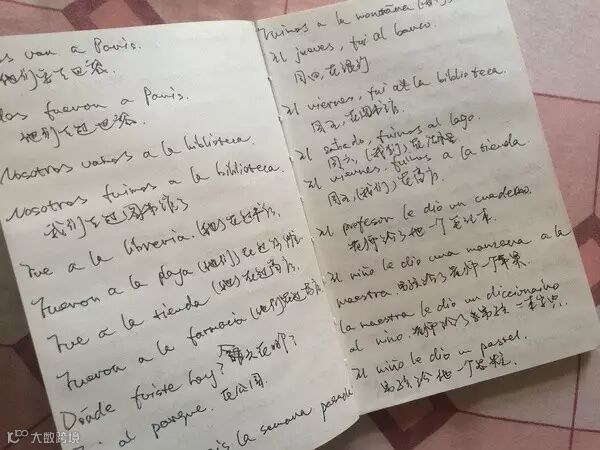 os van a París.
他们去了巴黎.
los fueron a París.
他们去过巴黎.
Nosotros vamos a la biblioteca.
Nosotros fuimos a la biblioteca.
我们去过图书馆了
Fue a la librería. (他)去过书店.
Fueron a la playa (他们)去过海滩.
Fue a la tienda (他)去过商店.
Fueron a la farmacia (他们)去过药店.
Dónde fuiste hoy? 今天去哪了?
al parque. 在公园.
is la semana pasada
Fuimos a la montaña
El jueves, fui al banco.
周四,在银行
El viernes, fui a la biblioteca.
周五,在图书馆.
El sábado, fuimos al lago.
周六,(我们)在
El viernes, fuimos a la tienda.
周五,(我们)在商店.
El profesor le dio un cuaderno.
老师给了他一个笔记本.
El niño le dio una manzana a la
maestra. 男孩给了老师一个苹果.
la maestra le dio un diccionario
al niño. 老师给了男孩一本字典.
El niño le dio un pastel.
男孩给他一个蛋糕.
大数跨境